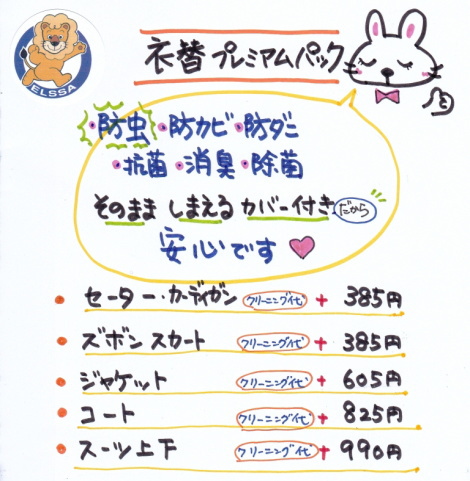 ELSSA
衣替プレミアムパック
・防虫・防カビ・防ダニ
・抗菌・消臭・除菌
そのまましまえるカバー付きだから
安心です♥
• セーター・カーディガン クリーニング代 + 385円
• ズボン スカート クリーニング代 + 385円
• ジャケット クリーニング代 + 605円
• コート クリーニング代 + 825円
• スーツ上下 クリーニング代 + 990円